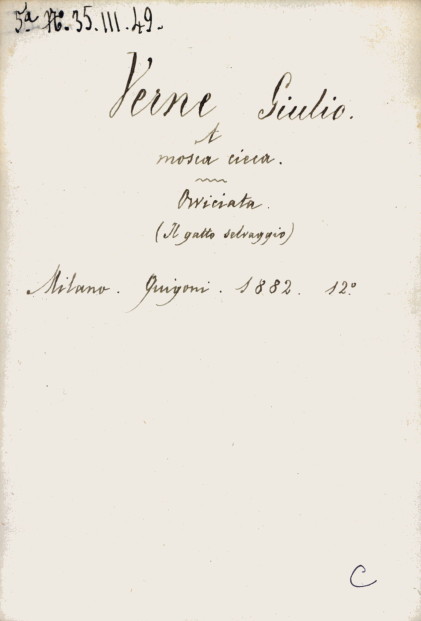 5ª N. 35. III. 49.
Verne Giulio.
A
mosca cieca.
Orviciata.
(Il gatto selvaggio)
Milano. Guigoni. 1882. 12º
C